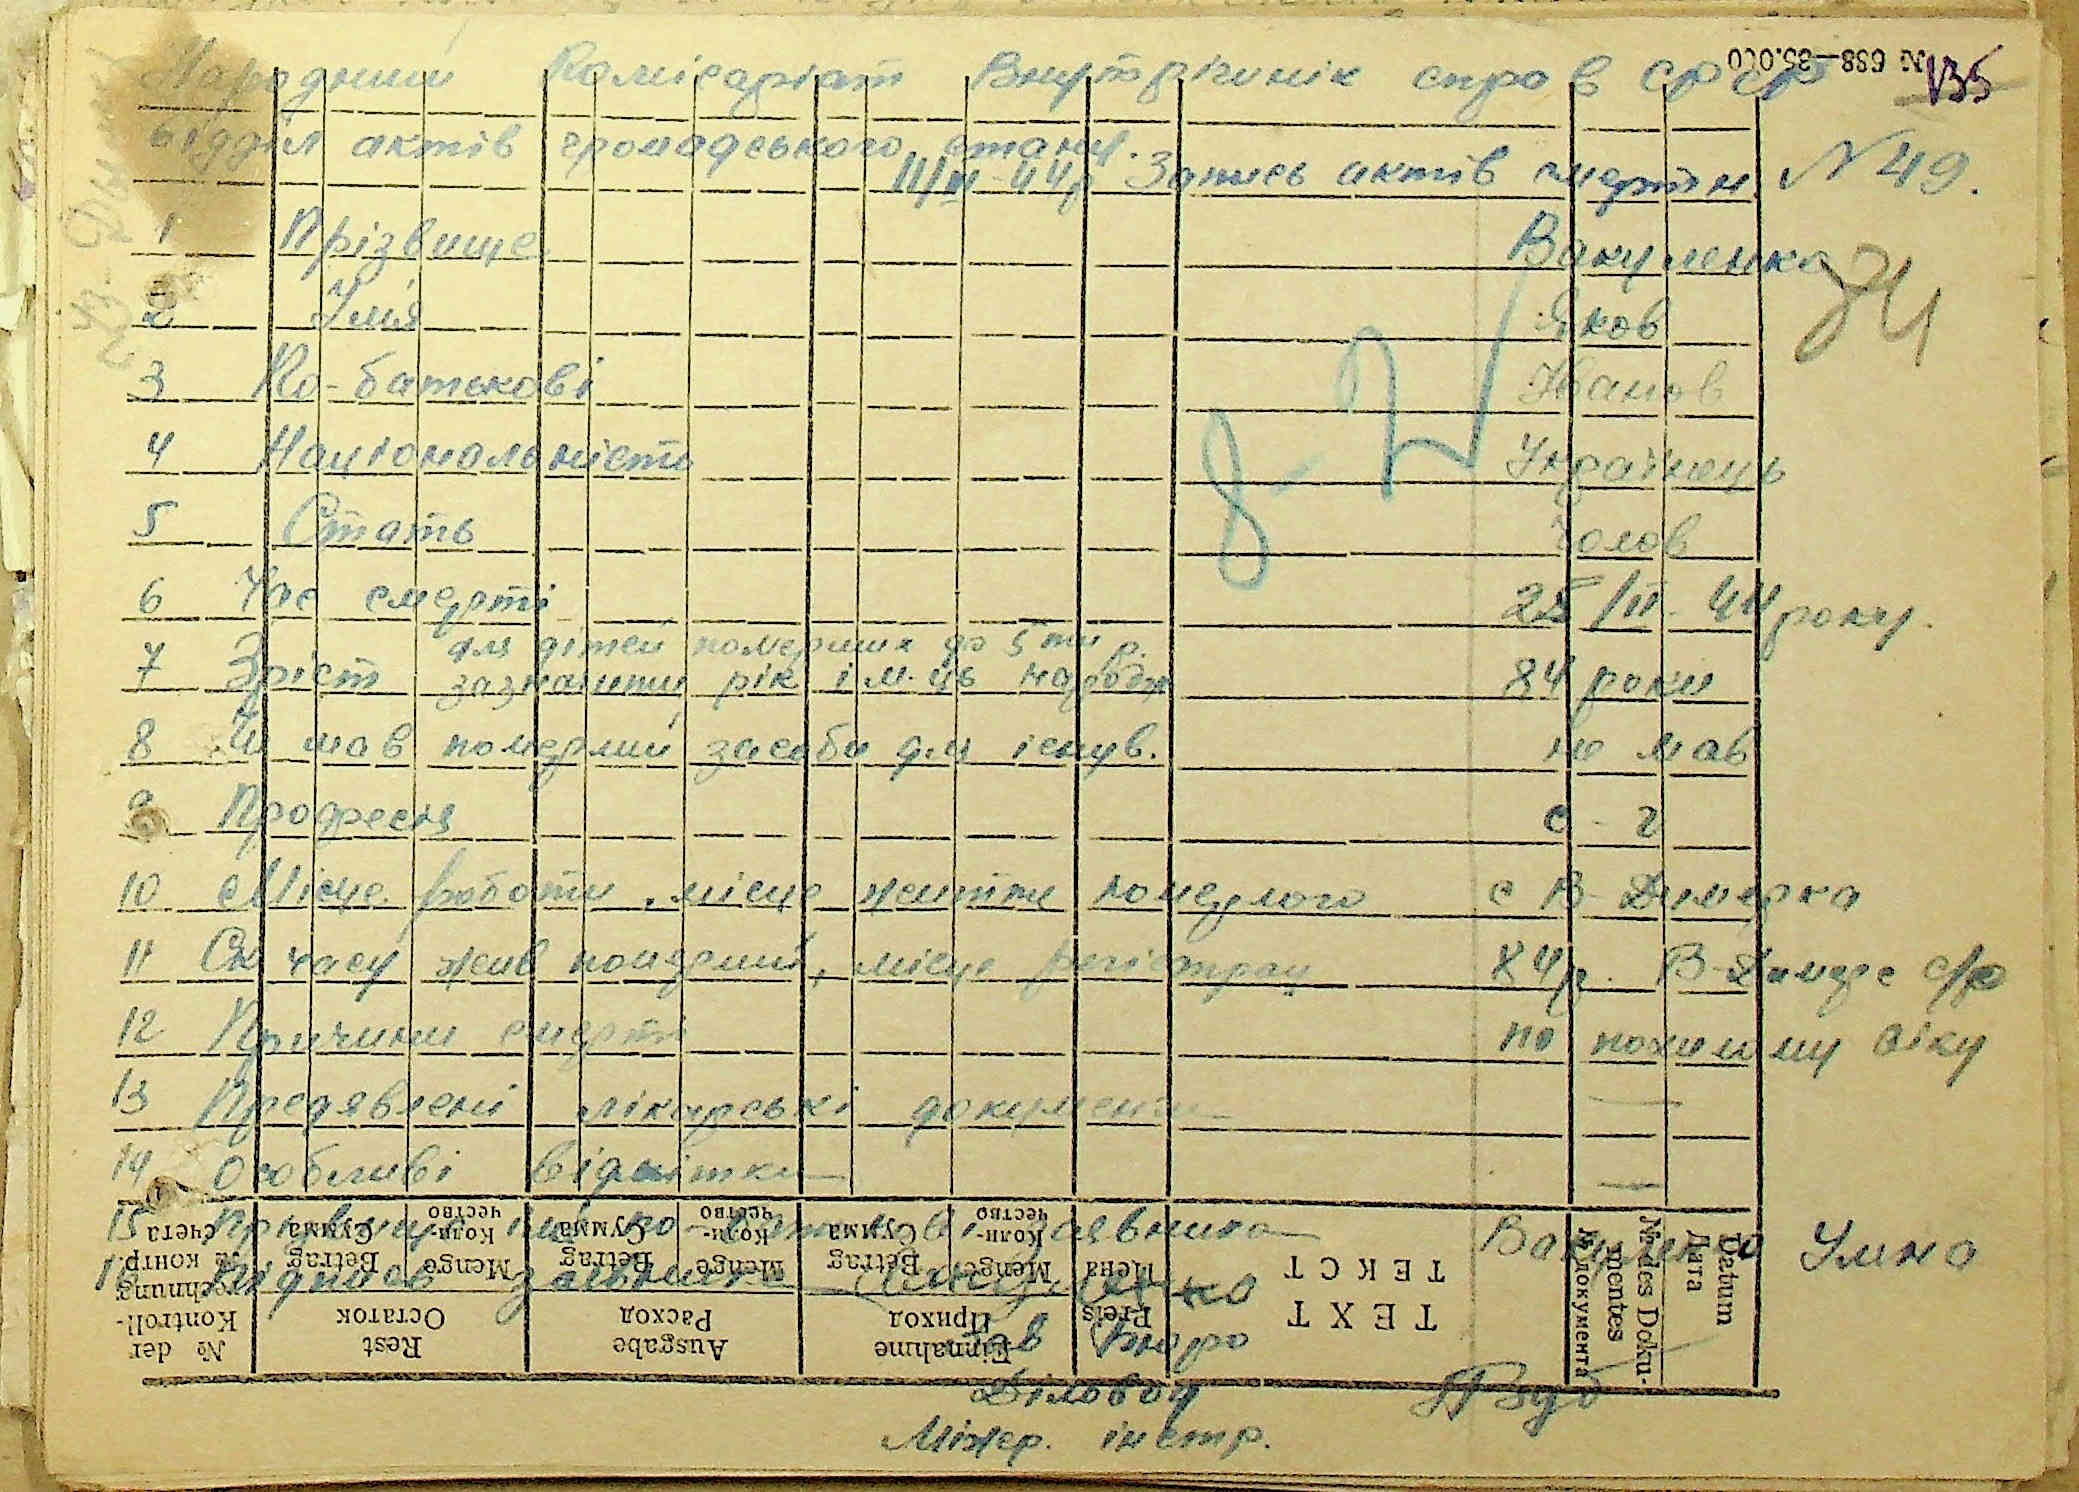 № 698—35.000
135
Народний Комісаріат Внутрішнік справ СРСР
відділ актів громадського стану.
11/III-44р Запись актів смерти N 49.
1 Прізвище Вакуленко
2 Імя Яков
3 По-батькові Іванов
4 Національність Українець
5 Стать Чолов
6 Час смерті 25/II-44 року.
7 Зріст для дітей померших до 5ти р.
зазначити рік і м-ць народж 84 роки
8 Чи мав померлий засоби для існув. не мав
9 Професія с-г
10 Місце роботи, місце життя померлого с В-Димерка
11 Ск часу жив померлий, місце регістрац 84р. В-Димерс с/р
12 Причини смерті по похилому віку
13 Предявлені лікарські документи —
14 Особливі відмітки —
15 Прізвище імя по-батькові заявника Вакуленко Уляна
16 Підпись заявника Вакуленко
Зав Бюро
Діловод
Міжер. інстр.
8-
84
Datum
Дата
№ des Doku-
mentes
№ документа
TEXT
ТЕКСТ
Preis
Цена
Einnahme
Приход
Menge
Коли-
чество
Betrag
Сумма
Ausgabe
Расход
Menge
Коли-
чество
Betrag
Сумма
Rest
Остаток
Menge
Коли-
чество
Betrag
Сумма
№ der
Kontroll-
rechnung
№ контр.
счета